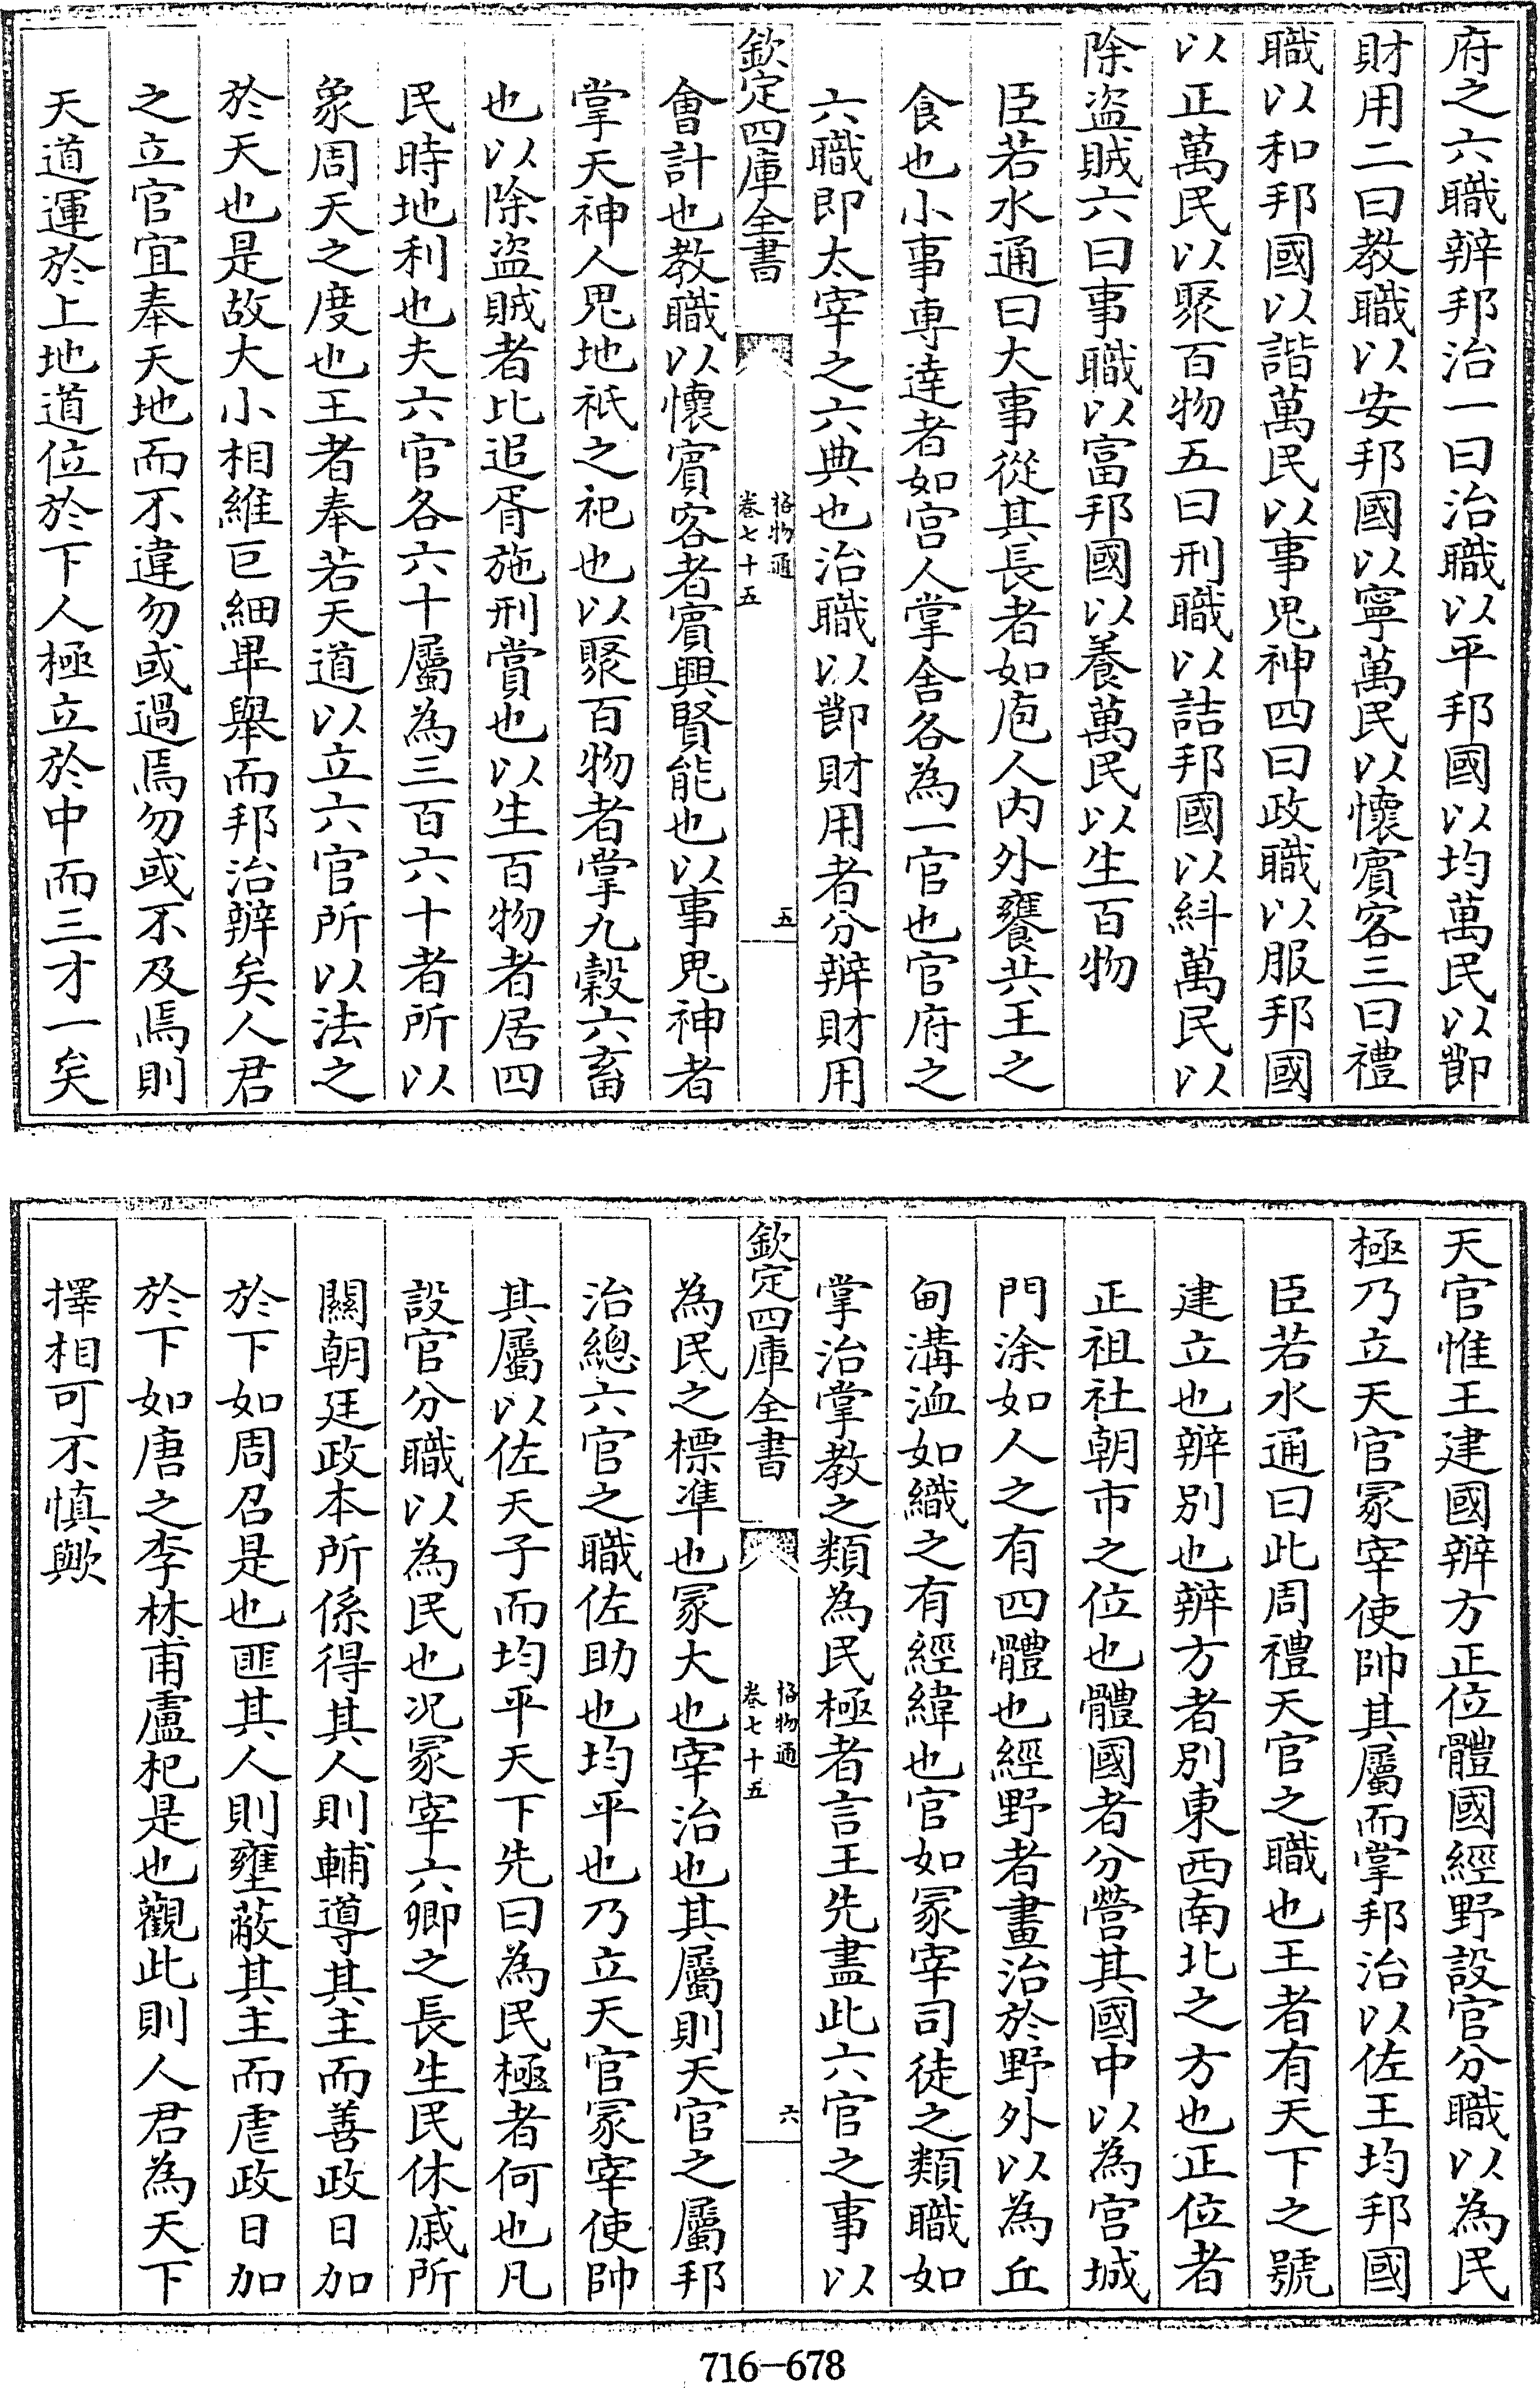 府之六職辨邦治一曰治職以平邦國以均萬民以節
財用二曰教職以安邦國以寧萬民以懷賓客三曰禮
職以和邦國以諧萬民以事鬼神四曰政職以服邦國
以正萬民以聚百物五曰刑職以詰邦國以糾萬民以
除盜賊六曰事職以富邦國以養萬民以生百物
臣若水通曰大事從其長者如庖人内外饔共王之
食也小事專達者如宫人掌舍各為一官也官府之
六職即太宰之六典也治職以節財用者分辨財用
欽定四庫全書
格物通
卷七十五
五
會計也教職以懷賓客者賓興賢能也以事鬼神者
掌天神人鬼地祇之祀也以聚百物者掌九穀六畜
也以除盜賊者比追胥施刑賞也以生百物者居四
民時地利也夫六官各六十屬為三百六十者所以
象周天之度也王者奉若天道以立六官所以法之
於天也是故大小相維巨細畢舉而邦治辨矣人君
之立官宜奉天地而不違勿或過焉勿或不及焉則
天道運於上地道位於下人極立於中而三才一矣
天官惟王建國辨方正位體國經野設官分職以為民
極乃立天官冢宰使帥其屬而掌邦治以佐王均邦國
臣若水通曰此周禮天官之職也王者有天下之號
建立也辨别也辨方者别東西南北之方也正位者
正祖社朝市之位也體國者分營其國中以為宫城
門涂如人之有四體也經野者畫治於野外以為丘
甸溝洫如織之有經緯也官如冢宰司徒之類職如
掌治掌教之類為民極者言王先盡此六官之事以
欽定四庫全書
格物通
卷七十五
六
為民之標準也冢大也宰治也其屬則天官之屬邦
治總六官之職佐助也均平也乃立天官冢宰使帥
其屬以佐天子而均平天下先曰為民極者何也凡
設官分職以為民也况冢宰六卿之長生民休戚所
關朝廷政本所係得其人則輔導其主而善政日加
於下如周召是也匪其人則壅蔽其主而虐政日加
於下如唐之李林甫盧杞是也觀此則人君為天下
擇相可不慎歟
716-678